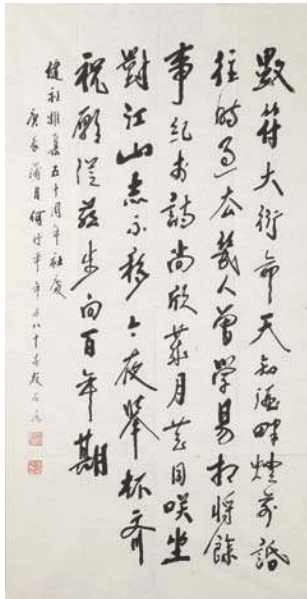 數符大衍命天知酒畔燈前話
往時過去幾人曾學易相將餘
事紀於詩尚欣月花同咲坐
對江山志不移今夜舉杯齊
祝願從茲步向百年期
健社雅集五十周年社慶
庚辰蒲月何竹平年八十